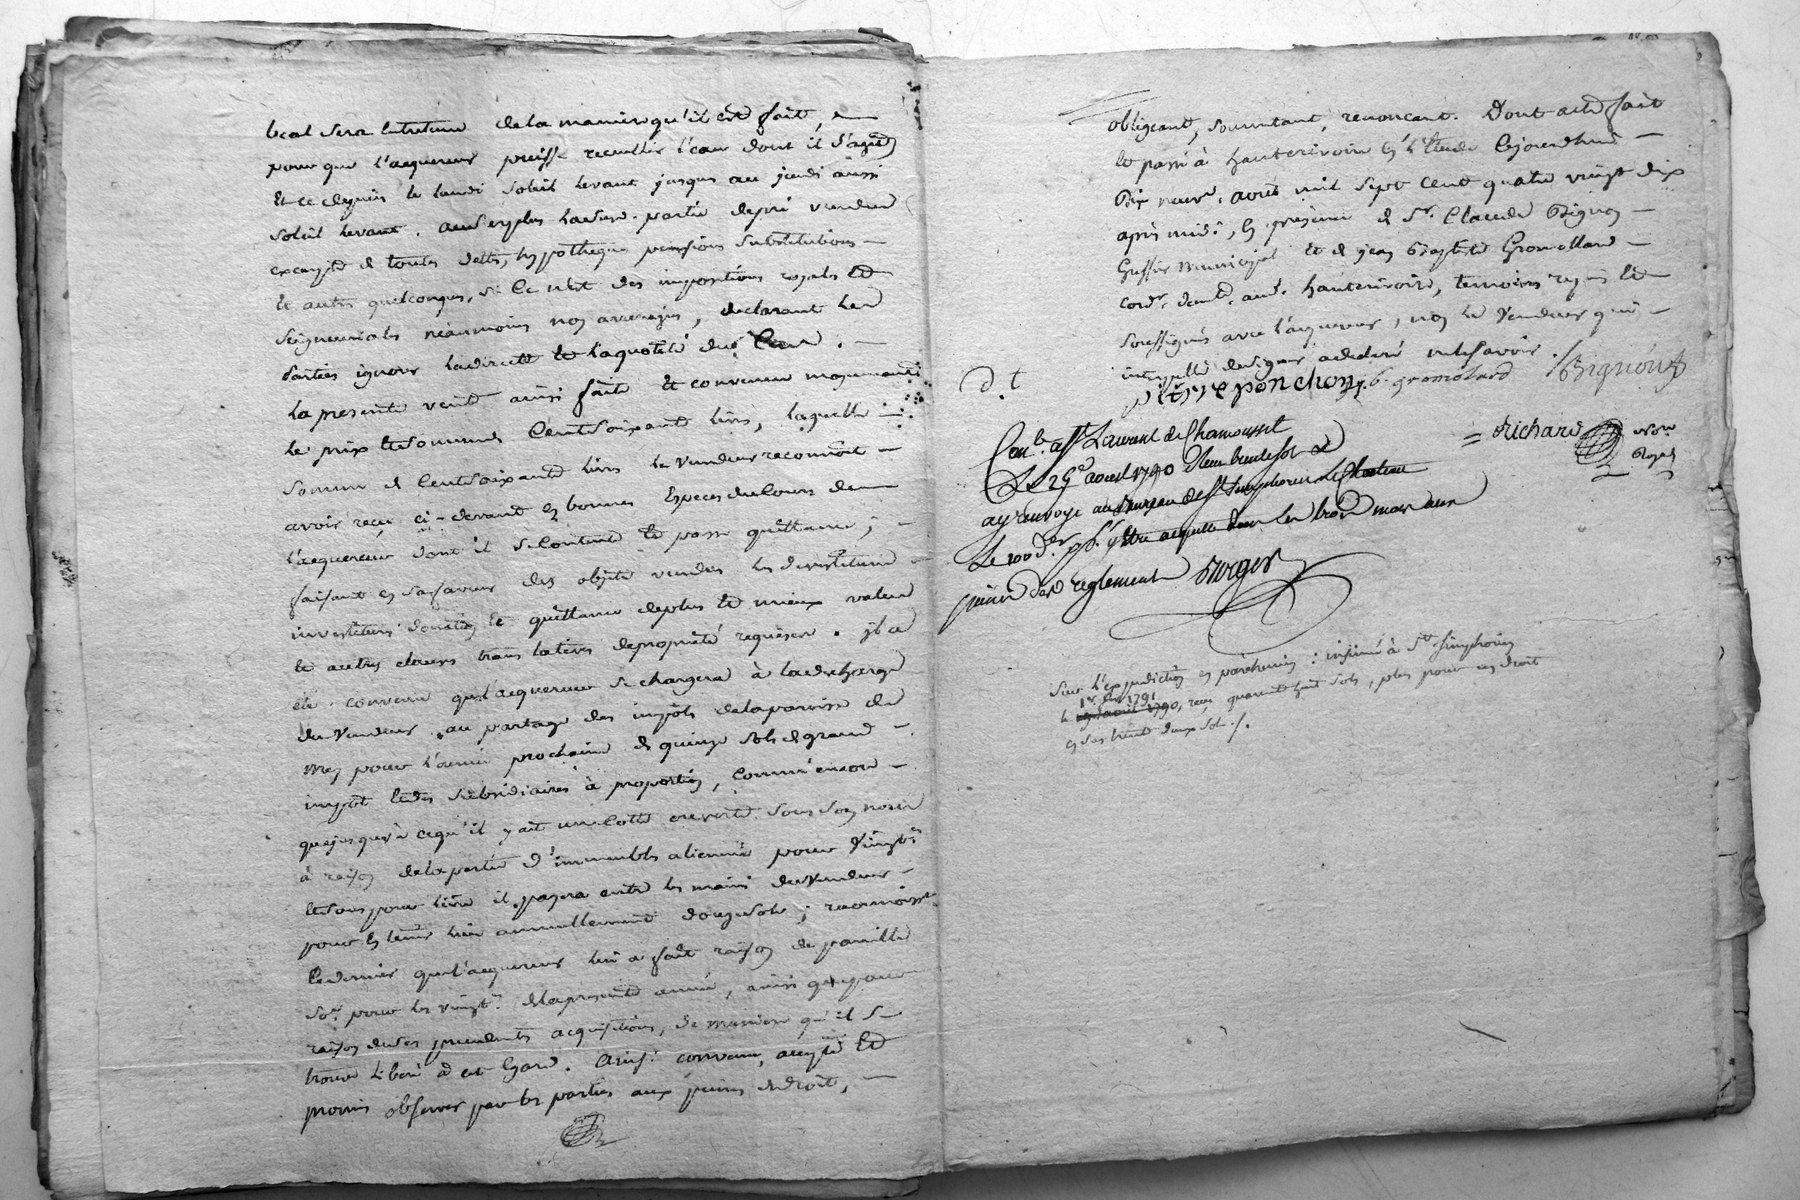 beal sera entretenu de la maniere qu'il est fait,
pour que l'acquereur puisse recueillir l'eau dont il s'agit
Et ce depuis le lundi soleil levant jusques au jeudi aussi
soleil levant. partie vendue
exempte de toutes dettes, hypotheque pensions substitutions
et autres quelconques, si ce n'est des impositions royales et
seigneuriales neanmoins non arreragés, declarant les
parties ignorer la directe et la quotité du Cens.
La presente vente ainsi faite et convenue moyennant
le prix et somme Centsoixante livres, laquelle
somme de Centsoixante livres le vendeur reconnoit
avoir reçu ci-devant en bonnes Especes du Cours de
l'acquereur dont il se contente et passe quittance ;
faisant en sa faveur des objets vendus les devestiture
investiture donation et quittance de plus et mieux value
et autres clauses translatives de propriété requises. il a
été convenu que l'acquereur se chargera à la decharge
du Vendeur au partage des impots de la paroisse de
Mey pour l'année prochaine de quinze sols de grand
impôt et des subsidiaires à proportion, comme encore
que jusqu'à ce qu'il y ait une Cotte ouverte sous son nom
à raison de la partie d'immeubles alienné pour Vingt.es
et sous pour livre il payera entre les mains du Vendeur
pour en tenir lieu annuellement douze sols ; reconnoissant
ce dernier que l'acquereur lui a fait raison de pareille
so.e pour les vingt.es de la presente année, ainsi que pour
raison de ses precedentes acquisitions, de maniere qu'il se
trouve liberé à cet Egard. Ainsi convenu, accepté et
promis observer par les parties aux peines de droit,
obligeant, soumettant, renonçant. Dont acte fait
et passé à hauterivoire en l'Etude Cejourdhui
Dix neuf. avril mil sept cent quatre vingt dix
après midi, en presence de S.r Claude Bignon
Greffier Municipal et de jean Baptiste Gromollard
cord.r dem.t aud. hauterivoire, temoins requis et
soussignés avec l'acquereur, non le Vendeur qui
interpellé de signer a declaré ne le savoir.
pierre ponchon j. b. gromolard Bignon
D t
Con.lé a S.t Laurent de Chamousset
Le 29 avril 1790 Reçu trente sols
ay renvoyé au Bureau de S.t Simphorien Le Chateau
Le 100.e d.er p.r y être acquitté dans les trois mois aux
peines des reglements Burger
= Richard Not.re
Royal
Sur l'expedition en parchemin : insinué à S.t Simphorien
1791
le 1790, reçu quarante huit sols, plus pour ces droit